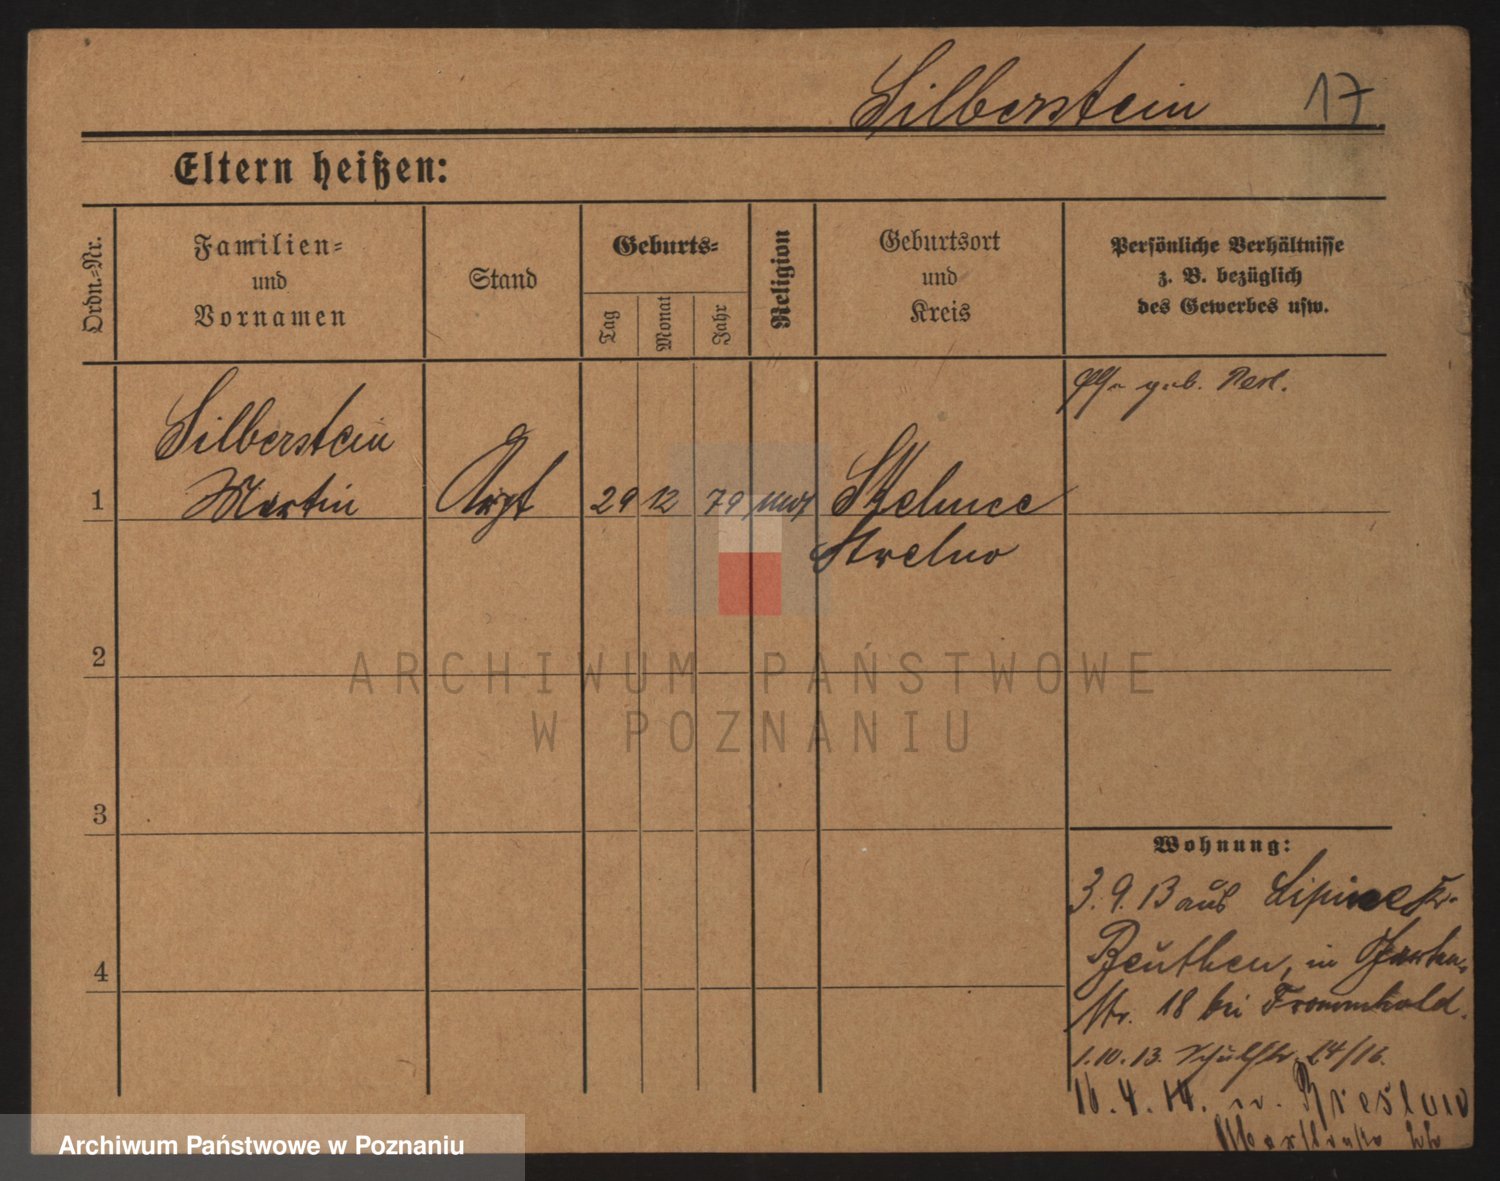 Silberstein 17
Eltern heißen:
Ordn.-Nr.
Familien-
und
Vornamen
Stand
Geburts-
Tag
Monat
Jahr
Religion
Geburtsort
und
Kreis
Persönliche Verhältnisse
z. B. bezüglich
des Gewerbes usw.
geb.
Silberstein
Martin
1
Arzt
29 12 79 mos
Strelno
2
3
4
Wohnung:
3. 9. 13 aus Lipine Kr.
Beuthen, in Garten-
str. 18 bei Frommhold.
1. 10. 13. Schulstr. 14/16.
16. 4. 14. n. Breslau
ARCHIWUM PAŃSTWOWE
W POZNANIU
Archiwum Państwowe w Poznaniu